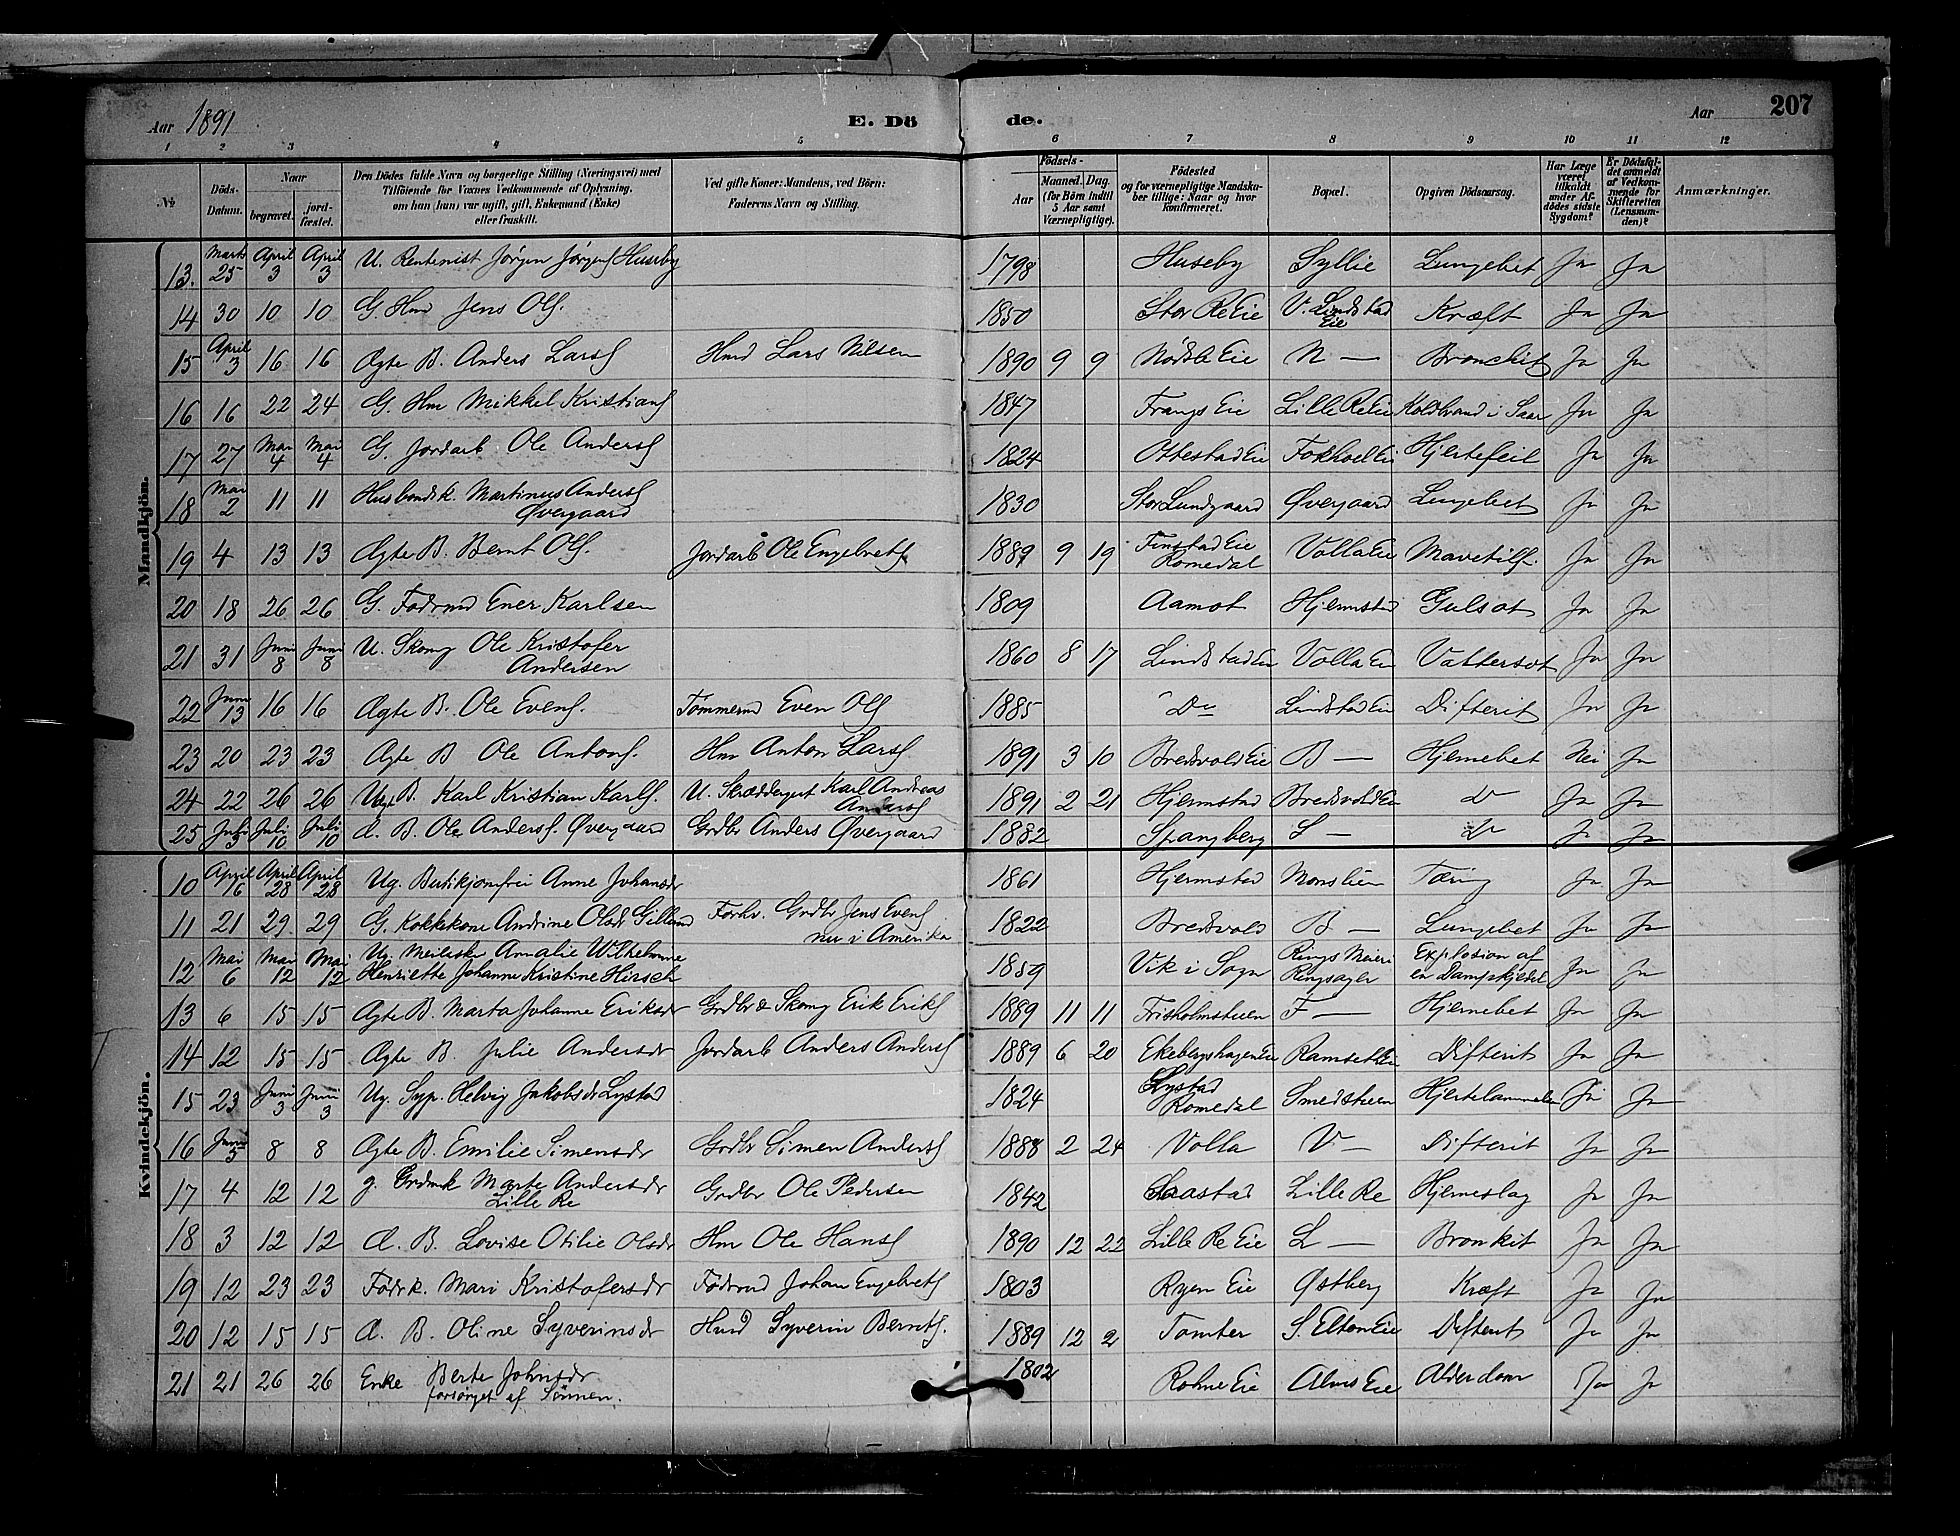 Aar 1891
E. Döde.
Aar 207
1 2 3 4 5 6 7 8 9 10 11 12
№
Döds-Datum.
Naar
begravet.
jord-fæstet.
Den Dödes fulde Navn og borgerlige Stilling (Næringsvei) med
Tilföiende for Voxnes Vedkommende af Oplysning,
om han (hun) var ugift, gift, Enkemand (Enke)
eller fraskilt.
Ved gifte Koner: Mandens, ved Börn:
Faderens Navn og Stilling.
Födsels-
Aar
Maaned. Dag.
(for Börn indtil
5 Aar samt
Værnepligtige).
Födested
og for værnepligtige Mandska-
ber tillige: Naar og hvor
Konfirmeret.
Bopæl.
Opgiven Dödsaarsag.
Har Læge
været
tilkaldt
under Af-
dödes sidste
Sygdom?
Er Dödsfal-
det anmeldt
af Vedkom-
mende for
Skifteretten
(Lensman-
den)?
Anmærkninger.
Mandkjön.
13. Marts 25 April 3 April 3 U. Rentenist Jørgen Jørgens Huseby 1798 Huseby Syllie Lungebet Ja Ja
14 30 10 10 G. Hmd Jens Ols. 1850 Stor Re Eie V. Lindstad Eie Kræft Ja Ja
15 April 3 16 16 Ægte B. Anders Lars Hmd Lars Nilsen 1890 9 9 Nordsle Eie N — Bronchit Ja Ja
16 16 22 24 G. Hm Mikkel Kristians 1847 Frangs Eie Lille Re Eie Koldbrand i Saar Ja Ja
17 27 Mai 4 Mai 4 G. Jordarb. Ole Anders 1824 Ottestad Eie Fokhoel Ei Hjertefeil Ja Ja
18 Mai 2 11 11 Husbondsk. Martinus Anders Øvergaard 1830 Stor Lundgaard Øvergaard Lungebet Ja Ja
19 4 13 13 Ægte B. Bernt Ols. Jordarb Ole Engebrets 1889 9 19 Finstad Eie Romedal Volla Eie Mavetilf. Ja Ja
20 18 26 26 G. Fødrmd Ener Karlsen 1809 Aamot Hjelmstad Gulsot Ja Ja
21 31 Juni 8 Juni 8 U. Skomg Ole Kristofer Andersen 1860 8 17 Lindstad Eie Volla Eie Vattersot Ja Ja
22 Juni 13 16 16 Ægte B. Ole Evens. Tømmermd Even Ols 1885 Do Lindstad Eie Difterit Ja Ja
23 20 23 23 Ægte B Ole Antons. Hm Anton Lars 1891 3 10 Bredvold Eie B — Hjernebet Nei Ja
24 22 26 26 Uægt B. Karl Kristian Karls. U. Skræddergut Karl Andreas Anders 1891 2 21 Hjermstad Bredvold Eie do Ja Ja
25 Juli 3 Juli 10 Juli 10 d. B. Ole Anders. Øvergaard Grdbr Anders Øvergaard 1882 Spangberg S — do Ja Ja
Kvindekjön.
10 April 16 April 28 April 28 Ug. Butikjomfru Anne Johansdr 1861 Hjermstad Monslien Tæring Ja Ja
11 21 29 29 G. Kokkekone Andrine Olsdr Gillund Forhv. Grdbr Jens Evens nu i Amerika 1822 Bredvold B — Lungebet Ja Ja
12 Mai 6 Mai 12 Mai 12 Ug. Meierske Amalie Wilhelmine Henriette Johanne Kristine Hirsch 1859 Vik i Sogn Rings Meieri Ringsager Explosion af en Dampkjedel Ja Ja
13 6 15 15 Ægte B. Marta Johanne Eriksdr Grdbr & Skomg Erik Eriks 1889 11 11 Frisholmstuen F — Hjernebet Ja Ja
14 12 15 15 Ægte B. Julie Andersdr Jordarb Anders Anders 1889 6 20 Ekebergshagen Eie Ramset Eie Difterit Ja Ja
15 23 Juni 3 Juni 3 Ug. Syp. Helvig Jakobsdr Lystad 1824 Lystad Romedal Smedstuen Hjertelammelse Ja Ja
16 Juni 5 8 8 Ægte B. Emilie Simensdr Grdbr Simen Anders 1888 2 24 Volla V — Difterit Ja Ja
17 4 12 12 g. Grdmk Marte Andersdr Lille Re Grdbr Ole Pedersen 1842 Saastad Lille Re Hjerneslag Ja Ja
18 3 12 12 d. B. Lovise Otilie Olsdr Hm Ole Hans 1890 12 22 Lille Re Eie L — Bronkit Ja Ja
19 12 23 23 Fødrk. Mari Kristofersdr Fødrmd Johan Engebrets 1803 Ryen Eie Østberg Kræft Ja Ja
20 12 15 15 d. B. Oline Syverinsdr Hmd Syverin Bernts. 1889 12 2 Tomter S. Elton Eie Difterit Ja Ja
21 21 26 26 Enke Berte Johnsdr forsørget af Sønnen. 1802 Rohne Eie Alms Eie Alderdom Ja Ja